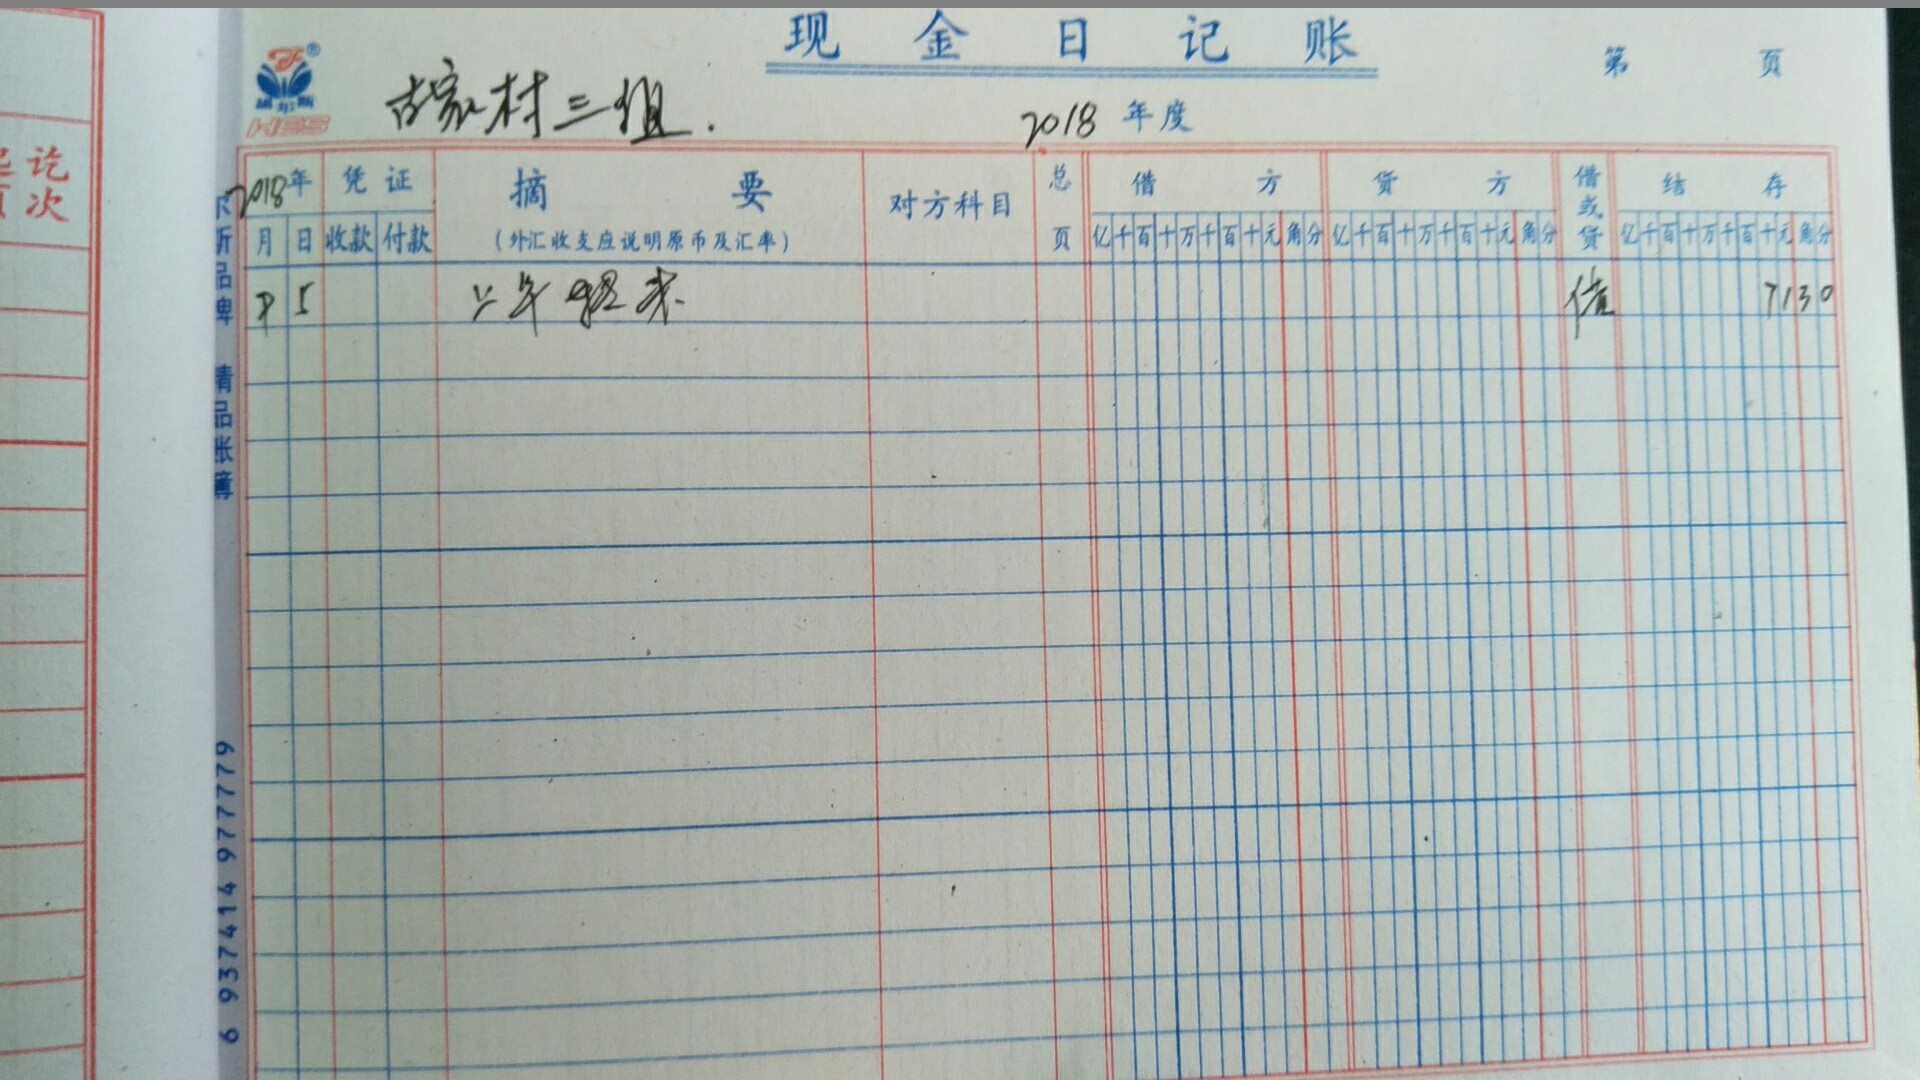 现金日记账
第 页
赫尔斯
HES
胡家村三组.
2018 年度
2018年 凭证 摘要 对方科目 总页 借方 贷方 借或贷 结存
月 日 收款 付款 (外汇收支应说明原币及汇率) 亿千百十万千百十元角分 亿千百十万千百十元角分 亿千百十万千百十元角分
5 上年 借 7130
讫
次
尔斯品牌 精品账簿
6 937414 977779